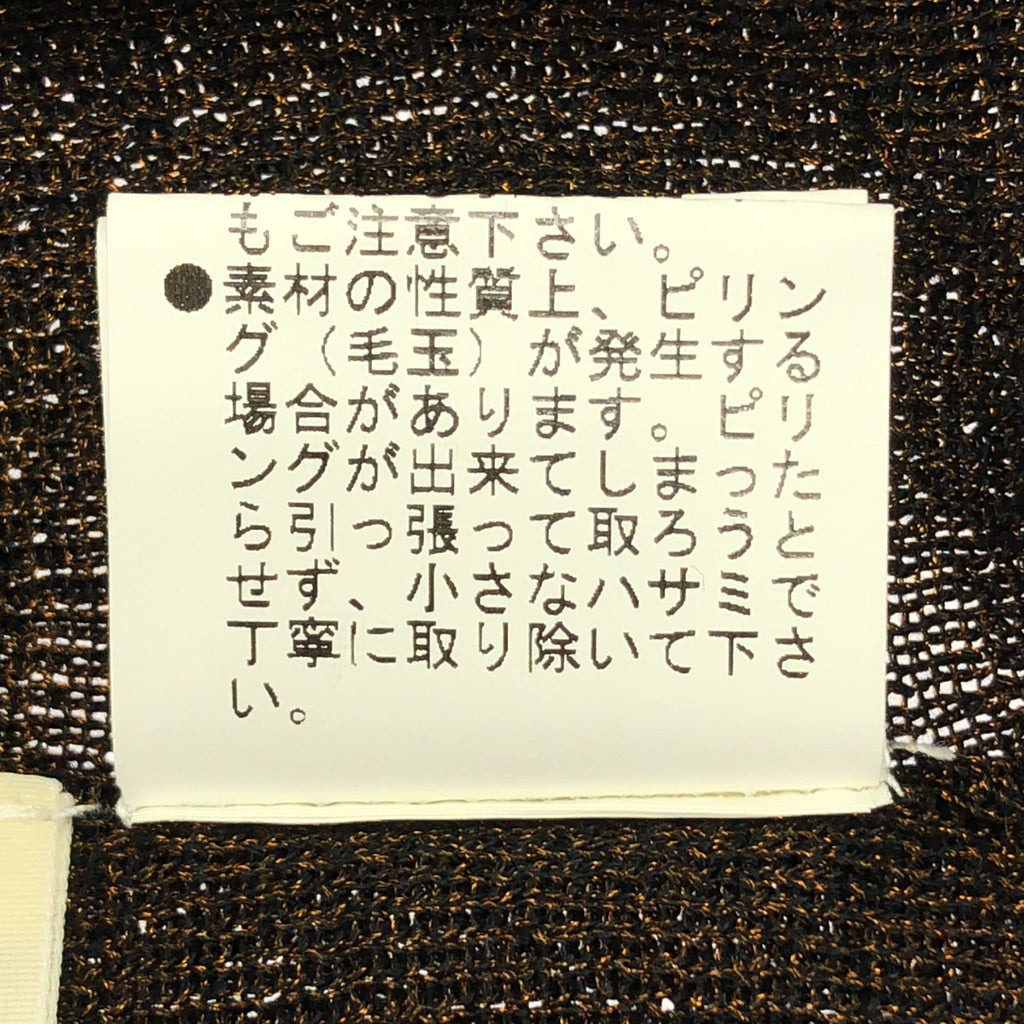 もご注意下さい。
●素材の性質上、ピリン
グ（毛玉）が発生する
場合があります。ピリ
ングが出来てしまった
ら引っ張って取ろうと
せず、小さなハサミで
丁寧に取り除いて下さ
い。